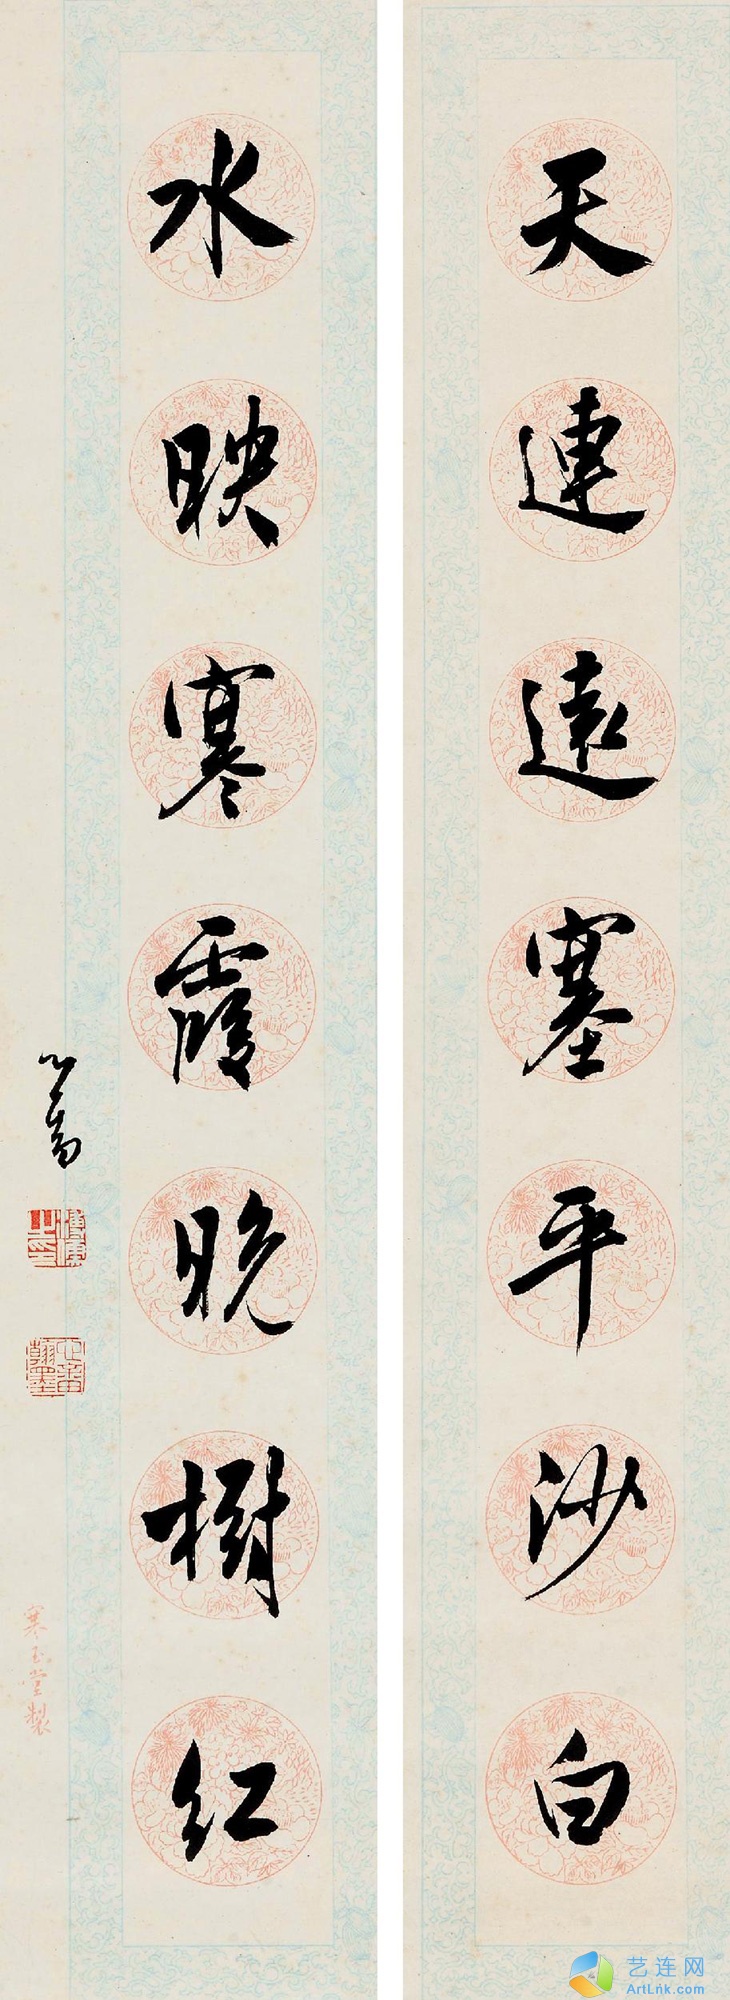 天連遠塞平沙白
水映寒霞晚樹紅
心畬
溥儒之印
寒玉堂製
艺连网
ArtLnk.com